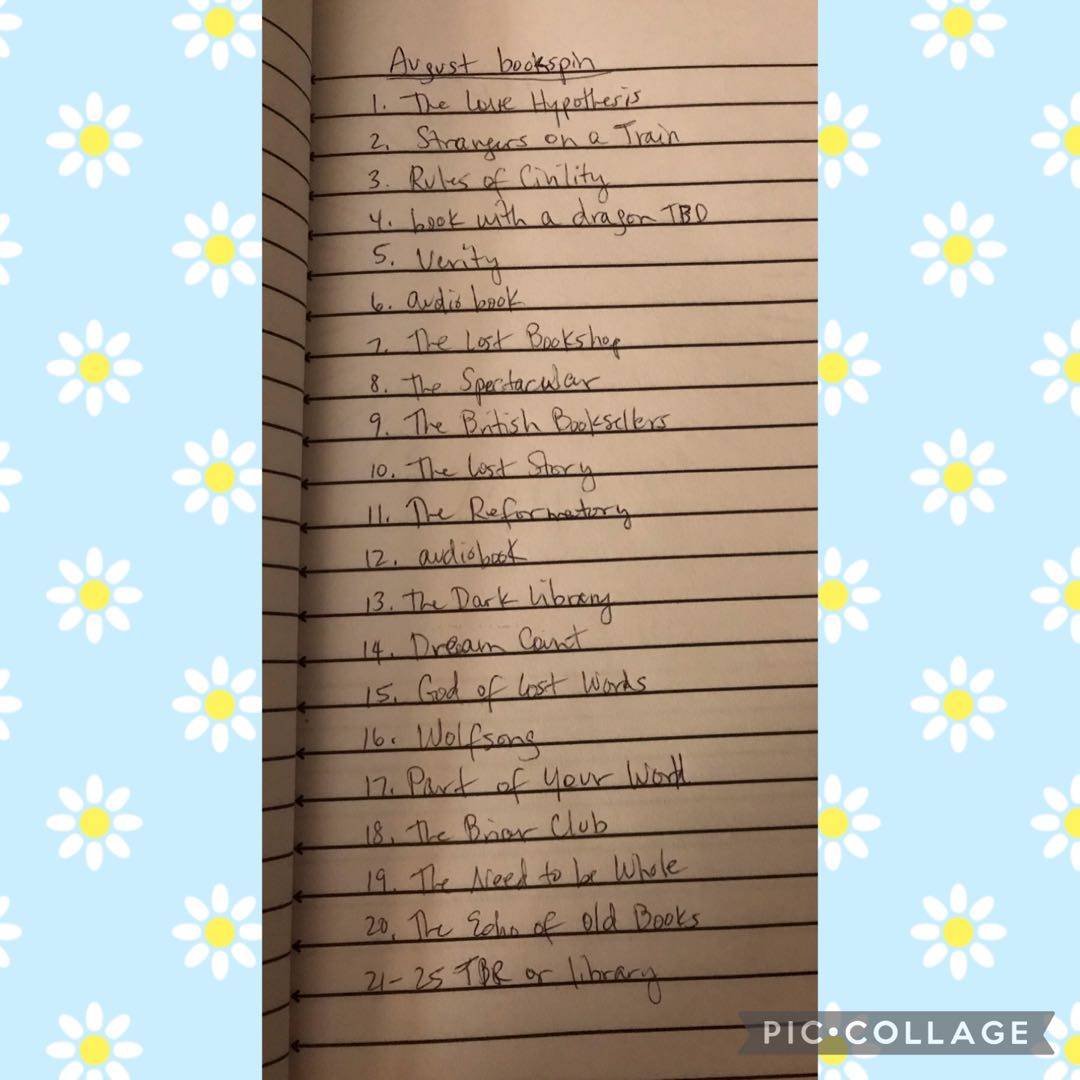 August bookspin
1. The Love Hypothesis
2. Strangers on a Train
3. Rules of Civility
4. book with a dragon TBD
5. Verity
6. audio book
7. The Lost Bookshop
8. The Spectacular
9. The British Booksellers
10. The Lost Story
11. The Reformatory
12. audiobook
13. The Dark Library
14. Dream Count
15. God of Lost Words
16. Wolfsong
17. Part of Your World
18. The Briar Club
19. The Need to be Whole
20. The Echo of Old Books
21-25 TBR or library
PIC•COLLAGE